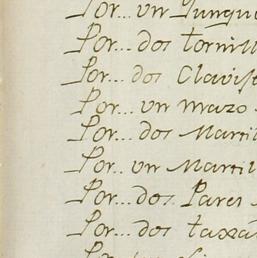 Por... un Yunqu
Por... dos tornill
Por... dos Clavij
Por... un mazo
Por... dos Martil
Por.. un Martil
Por... dos Pares
Por... dos taxa
Por